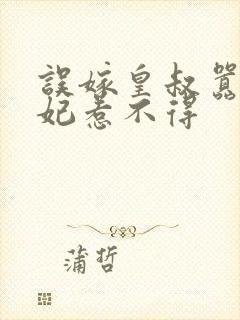 誤嫁皇叔囂
妃惹不得
蒲哲